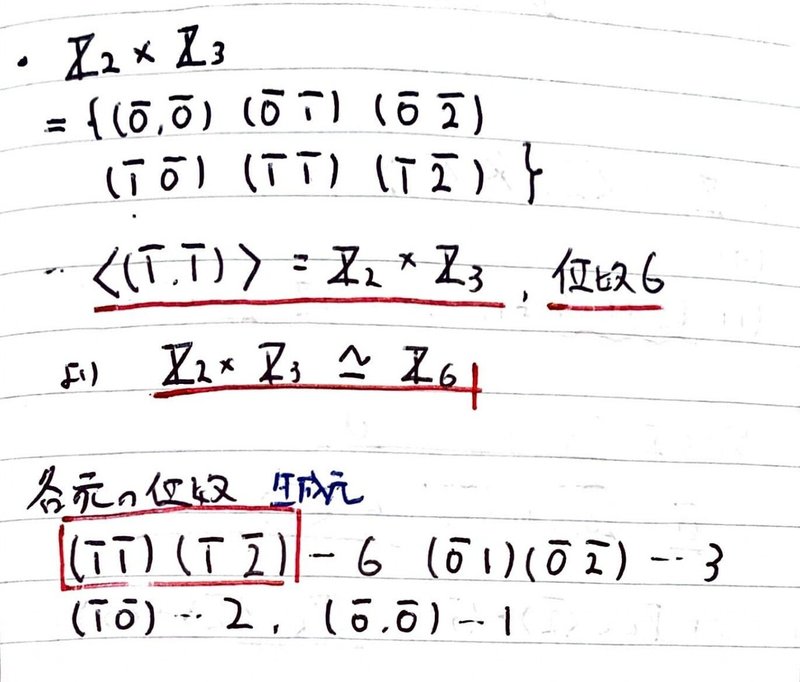 ・ ℤ₂ × ℤ₃
= {(0̄,0̄) (0̄ 1̄) (0̄ 2̄)
(1̄ 0̄) (1̄ 1̄) (1̄ 2̄) }
‥ <(1̄,1̄)> = ℤ₂ × ℤ₃ , 位数6
より ℤ₂ × ℤ₃ ≃ ℤ₆
各元の位数 生成元
(1̄ 1̄) (1̄ 2̄) ― 6 (0̄ 1)(0̄ 2̄) --- 3
(1̄ 0̄) --- 2 , (0̄,0̄) -- 1